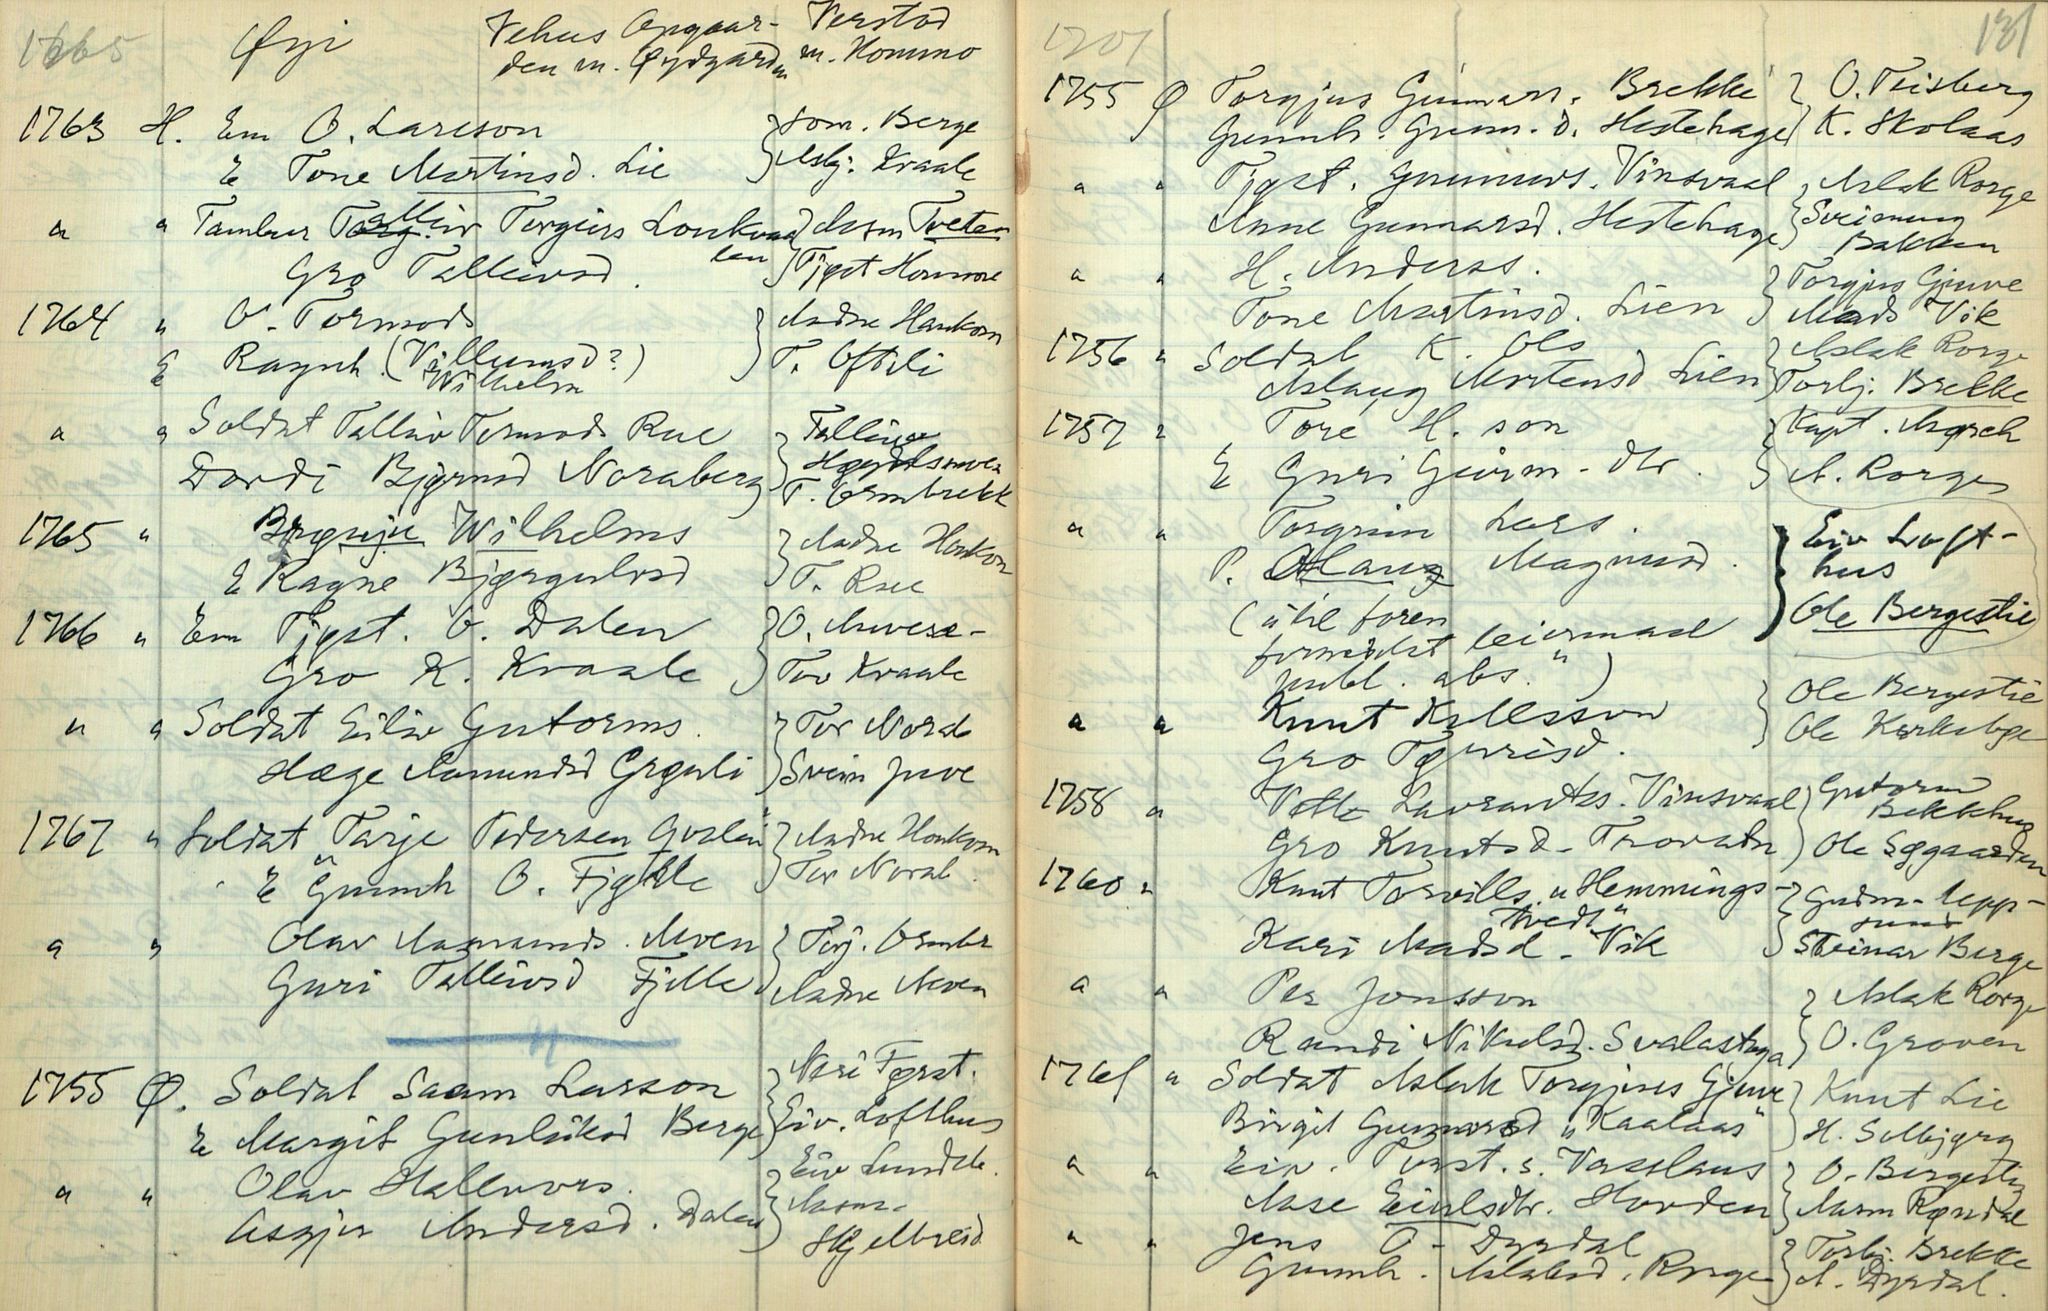 1765 Øyi Vehus Opgaar- Verstad
den m. Øydgarden m. Hommo
1763 H. Em O. Larsson } Som. Berge
E Tone Martinsd. Lie } Asbj. Kraale
" " Tambur Talleiv Torgiers } Aasm Tveten
Gro Talleivsd. } Tjøst Hommo
1764 " O. Tormods } Aadne Haukom
E Ragnh. (Villumsd?) } T. Oftili
Wilhelm
" " Soldat Talleiv Tormods Rue } Talleiv
Dordi Bjørnsd Noraberg } T. Ormbrekk
1765 " Wilhelms } Aadne Haukom
E Ragne Bjørgulvsd } T. Rue
1766 " Em Tjøst. O. Dalen } O.
Gro K. Kraale } Tor Kraale
" " Soldat Eiliv Gutorms. } Tor Norab
Hæge Aamundsd Grøvli } Svein Juve
1767 " Soldat Tarje Pedersen } Aadne Haukom
E Gunnh O. Fjelle } Tor Norab.
" " Olav Aasmunds. Moen } Torj. Ormbr
Guri Talleivsd Fjelle } Aadne Moen
1755 Ø. Soldat Saam Larson } Neri Først.
E Margit Gunleiksd Berge } Eiv. Lofthus
" " Olav Hallvors. } Eiv Lundde.
Asgjer Andersd. Dalen } Aasm.
Skjelbreid
1201 131
1755 Ø Torgjus Gunnars. Brekke } O. Teisberg
Gunnh. Gunn. d. Hestehage } K. Skolaas
" " Tjøst. Gunnars. Vinsvaal } Aslak Rorge
Anne Gunnarsd. Hestehage } Sveinung
Bakken
" " H. Anderss. } Torgjus Gjuve
Tone Martinsd. Lien } Mads Vik
1756 " Soldat K. Ols } Aslak Rorge
Aslaug Mortensd Lien } Torbj. Brekke
1757 " Tore H. son } Kapt. Mørch
E Guri Guirm-dtr. } A. Rorge
" " Torgrim Lars. } Eiv Loft-
P. Aslaug Magnusd. hus
(" til foren Ole Bergestie
formedelst leiermaal
publ. abs.")
" " Knut Kittilsson } Ole Bergestie
Gro Tjurisd. } Ole Kirkebøe
1758 " Vetle Lavrantzs. Vinsvaal } Gutorm
Bekkhus
Gro Knutsd. } Ole Øygaarden
1760 " Knut Torvills. "Hemmings- } Gudm. Upp-
tvedt" sund
Kari Madsd. Vik } Steinar Berge
" " Per Jonsson } Aslak Rorge
Randi Nikulsd. Svalastoga } O. Groven
1761 " Soldat Aslak Torgjuss Gjuve } Knut Lie
Birgit Gunnarsd "Kaalaas" } H. Selbjørg
" " Eiv. Torst. s. Vaslaus } O. Bergestig
Aase Eivlsdtr. Hovden } Aasm Røndal
" " Jens O. Dyrdal } Torbj. Brekke
Gunnh. Aslaksd. Rorge } A. Dyrdal.